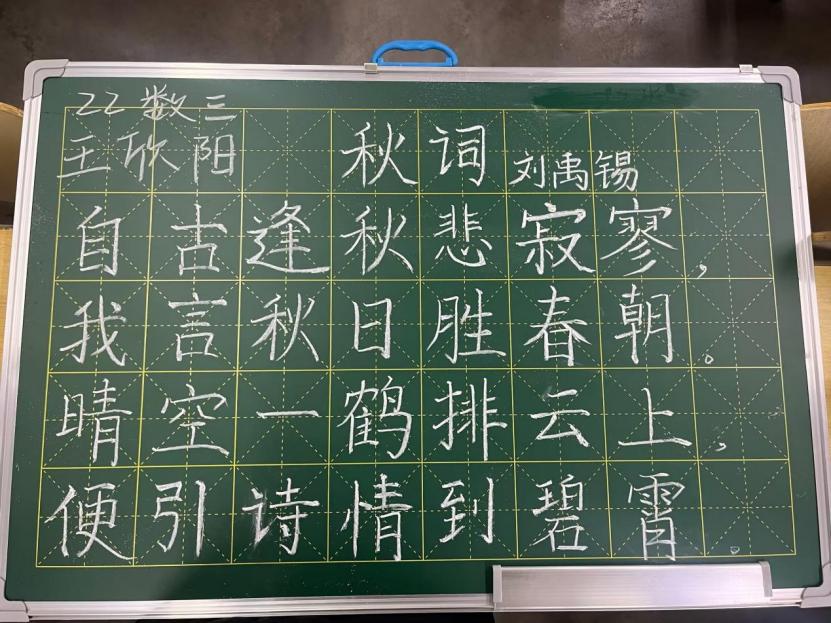 22数三
王欣阳
秋词 刘禹锡
自古逢秋悲寂寥，
我言秋日胜春朝。
晴空一鹤排云上，
便引诗情到碧霄。